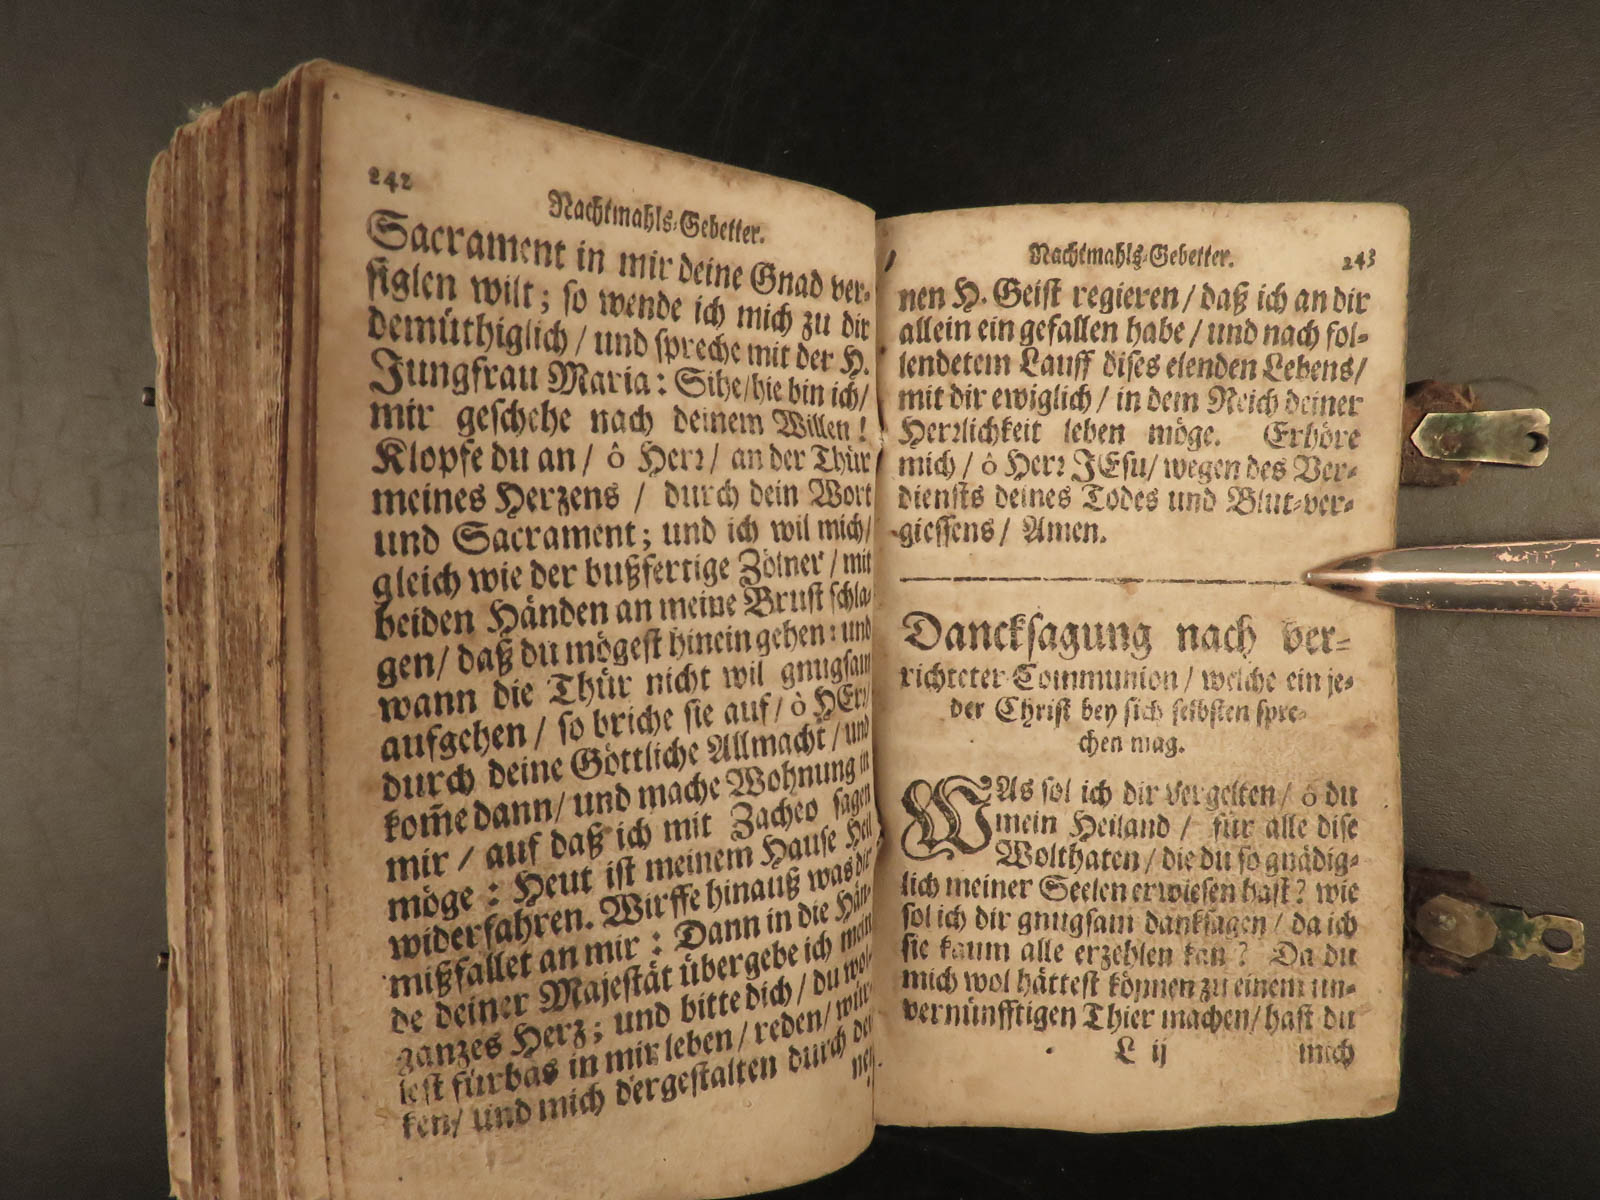 242
Nachtmahls-Gebetter.
Sacrament in mir deine Gnad ver-
siglen wilt; so wende ich mich zu dir
demüthiglich / und spreche mit der H.
Jungfrau Maria: Sihe/hie bin ich/
mir geschehe nach deinem Willen!
Klopfe du an / ô Herr/ an der Thür
meines Herzens / durch dein Wort
und Sacrament; und ich wil mich/
gleich wie der bußfertige Zölner / mit
beiden Händen an meine Brust schla-
gen/ daß du mögest hinein gehen: und
wann die Thür nicht wil gnugsam
aufgehen / so briche sie auf/ ô HErr/
durch deine Göttliche Allmacht / und
kom̃e dann/ und mache Wohnung in
mir / auf daß ich mit Zacheo sagen
möge: Heut ist meinem Hause Heil
widerfahren. Wirffe hinauß was dir
mißfallet an mir: Dann in die Hän-
de deiner Majestät übergebe ich mein
ganzes Herz; und bitte dich / du wol-
lest fürbas in mir leben/ reden/ wür-
ken/ und mich dergestalten durch dei-
nen
Nachtmahls-Gebetter.
243
nen H. Geist regieren / daß ich an dir
allein ein gefallen habe / und nach fol-
lendetem Lauff dises elenden Lebens/
mit dir ewiglich / in dem Reich deiner
Herrlichkeit leben möge. Erhöre
mich / ô Herr JEsu/ wegen des Ver-
diensts deines Todes und Blut-ver-
giessens / Amen.
Dancksagung nach ver-
richteter Communion / welche ein je-
der Christ bey sich selbsten spre-
chen mag.
WAs sol ich dir vergelten / ô du
mein Heiland / für alle dise
Wolthaten / die du so gnädig-
lich meiner Seelen erwiesen hast? wie
sol ich dir gnugsam danksagen / da ich
sie kaum alle erzehlen kan? Da du
mich wol hättest können zu einem un-
vernünfftigen Thier machen/ hast du
L ij
mich